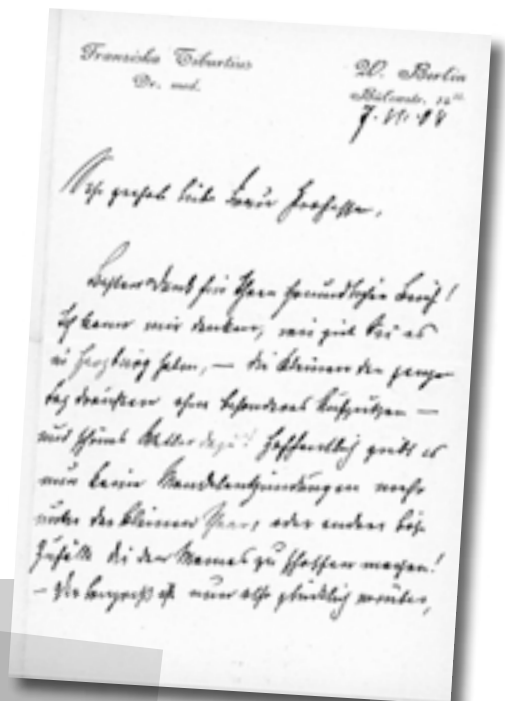 Franziska Tiburtius
Dr. med.
W. Berlin
7.
Sehr geehrte liebe Frau Professor,
Besten Dank für Ihren freundlichen Brief!
Ich kann mir denken, wie gut Sie es
in Harzburg haben, — die Kleinen den ganzen
Tag draußen ohne besonderes Aufputzen —
und schönes Wetter dazu! Hoffentlich giebt es
nun keine Mandelentzündungen mehr
unter der kleinen Schaar, oder andere böse
Zufälle die den Mamas zu schaffen machen!
— Der Congreß ist nun also glücklich vorüber,